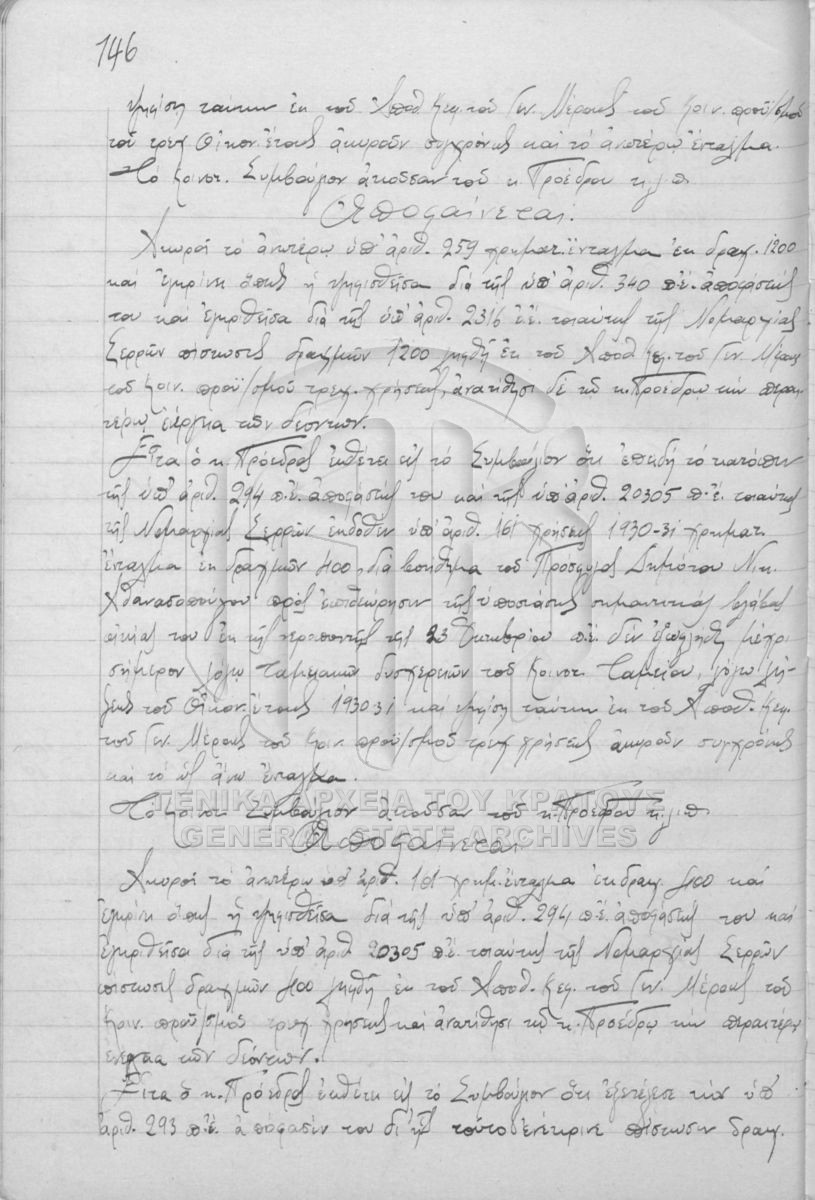 146
ψηφίση ταύτην ἐκ τοῦ Ἀποθ. Κεφ. τοῦ Γεν. Μέρους τοῦ Κοιν. προϋ/σμοῦ
τοῦ τρεχ. Οἰκον. ἔτους ἀκυροῦν συγχρόνως καὶ τό ἀνωτέρω ἔνταλμα.
Τό Κοινοτ. Συμβούλιον ἀκοῦσαν τοῦ κ. Προέδρου κ.λ.π.
Ἀποφαίνεται:
Ἀκυροῖ τό ἀνωτέρω ὑπ' ἀριθ. 259 χρηματ. ἔνταλμα ἐκ δραχ. 1200
καὶ ἐγκρίνει ὅπως ἡ ψηφισθεῖσα διά τῆς ὑπ' ἀριθ. 340 π.ἔ. ἀποφάσεώς
του καὶ ἐγκριθεῖσα διά τῆς ὑπ' ἀριθ. 2316 ἐ.ἔ. τοιαύτης τῆς Νομαρχίας
Σερρῶν πίστωσις δραχμῶν 1200 ληφθῇ ἐκ τοῦ Ἀποθ. Κεφ. τοῦ Γεν. Μέρους
τοῦ Κοιν. προϋ/σμοῦ τρεχ. χρήσεως, ἀνατίθησι δέ τῷ κ. Προέδρῳ τήν περαι-
τέρω ἐνέργεια τῶν δεόντων.
Εἶτα ὁ κ. Πρόεδρος ἐκθέτει εἰς τό Συμβούλιον ὅτι ἐπειδή τό κατόπιν
τῆς ὑπ' ἀριθ. 294 π.ἔ. ἀποφάσεώς του καὶ τῆς ὑπ' ἀριθ. 20305 π.ἔ. τοιαύτης
τῆς Νομαρχίας Σερρῶν ἐκδοθέν ὑπ' ἀριθ. 161 χρήσεως 1930-31 χρηματ.
ἔνταλμα ἐκ δραχμῶν 400, διά βοήθημα τοῦ Πρόσφυγος Δημότου Νικ.
Ἀθανασοπούλου πρός ἐπιδιόρθωσιν τῆς ὑποστάσης σημαντικάς βλάβας
οἰκίας του ἐκ τῆς τῆς 23 Ὀκτωβρίου π.ἔ. δέν ἐξωφλήθη μέχρι
σήμερον λόγω Ταμειακῶν δυσχερειῶν τοῦ Κοινοτ. Ταμείου, λόγω λή-
ξεως τοῦ Οἰκον. ἔτους 1930 31 καὶ ψηφίση ταύτην ἐκ τοῦ Ἀποθ. Κεφ.
τοῦ Γεν. Μέρους τοῦ Κοιν. προϋ/σμοῦ τρεχ χρήσεως ἀκυροῦν συγχρόνως
καὶ τό ὡς ἄνω ἔνταλμα.
Τό Κοινοτ. Συμβούλιον ἀκοῦσαν τοῦ κ. Προέδρου κ.λ.π.
ΓΕΝΙΚΑ ΑΡΧΕΙΑ ΤΟΥ ΚΡΑΤΟΥΣ
GENERAL STATE ARCHIVES
Ἀποφαίνεται:
Ἀκυροῖ τό ἀνωτέρω ὑπ' ἀριθ. 161 χρημ. ἔνταλμα ἐκ δραχ. 400 καὶ
ἐγκρίνει ὅπως ἡ ψηφισθεῖσα διά τῆς ὑπ' ἀριθ. 294 π.ἔ. ἀποφάσεώς του καὶ
ἐγκριθεῖσα διά τῆς ὑπ' ἀριθ 20305 π.ἔ. τοιαύτης τῆς Νομαρχίας Σερρῶν
πίστωσις δραχμῶν 400 ληφθῇ ἐκ τοῦ Ἀποθ. Κεφ. τοῦ Γεν. Μέρους τοῦ
Κοιν. προϋ/σμοῦ τρεχ χρήσεως καὶ ἀνατίθησι τῷ κ. Προέδρῳ τήν περαιτέρω
ἐνέργεια τῶν δεόντων.
Εἶτα ὁ κ. Πρόεδρος ἐκθέτει εἰς τό Συμβούλιον ὅτι ἐξετέλεσε τήν ὑπ'
ἀριθ. 293 π.ἔ. ἀπόφασίν του δι' ἧς τοῦτο ἐνέκρινε πίστωσιν δραχ.